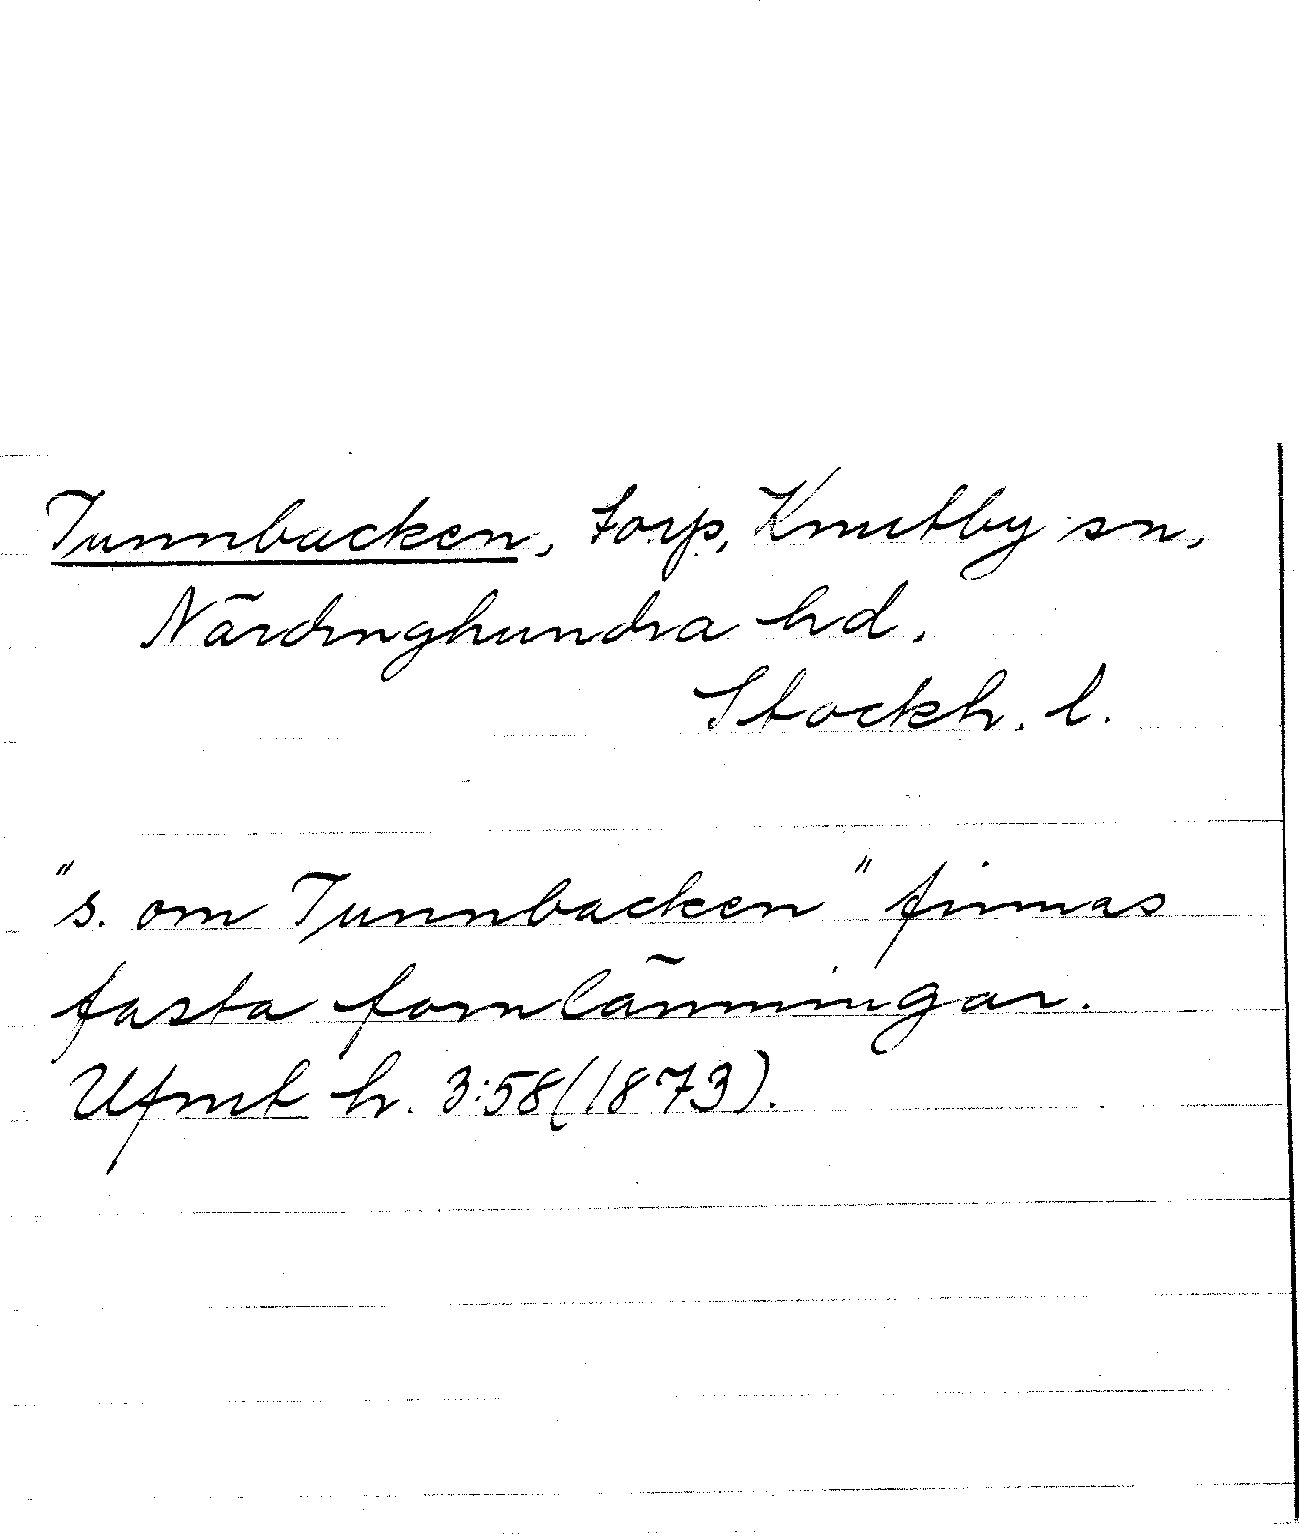 Tunnbacken, torp, Knutby sn,
Närdinghundra hd.
Stockh. l.
"s. om Tunnbacken" finnas
fasta fornlämningar.
Ufmt h. 3:58 (1873).